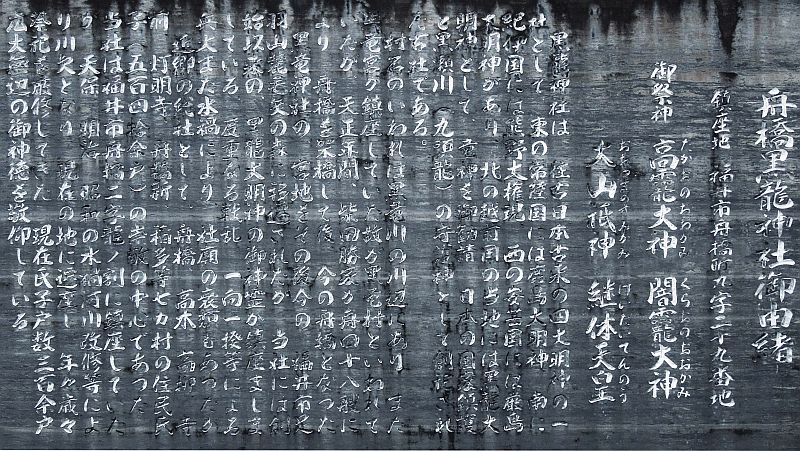 舟橋黒龍神社御由緒
鎮座地 福井市舟橋町九字二十九番地
御祭神 高靇大神 闇靇大神
たかおかのおおかみ くらおかのおおかみ
大山祗神 継体天皇
おおやまずみのかみ けいたいてんのう
黒龍神社は 往古日本古来の四大明神の一
社として 東の常陸国には鹿島大明神 南に
紀伊国には熊野大権現 西の安芸国には厳島
大明神があり 北の越前国の当地には黒龍大
明神として 霊神を御勧請 日本の国家鎮護
と黒龍川(九頭龍)の守護神として創祀され
た古社である。
村名のいわれは黒龍川の川辺にあり また
黒竜宮が鎮座していた故か黒竜村といわれて
いたが 天正年間 柴田勝家が舟四十八艘に
より 舟橋を架橋して後 今の舟橋となった
黒竜神社の 宮地をその後今の 福井市足
羽山 に 当社には創
始以来の 黒龍大明神の御神霊が鎮座ましま
している 度重なる戦乱 一向一揆等による
兵火また水禍により 社頭の衰退もあったが
近郷の総社として 舟橋 高木 寺
前 灯明寺 舟橋新 稲多等七カ村の住民氏
子(五百四拾余軒)の崇敬の中心であった
当社は福井市舟橋二字龍ノ割に鎮座していた
が 天保 明治 昭和の水禍河川改修等によ
り川欠となり 現在の地に遷座し 年々歳々
祭祀を厳修してきた 現在氏子戸数三百余戸
広大無辺の御神徳を敬仰している